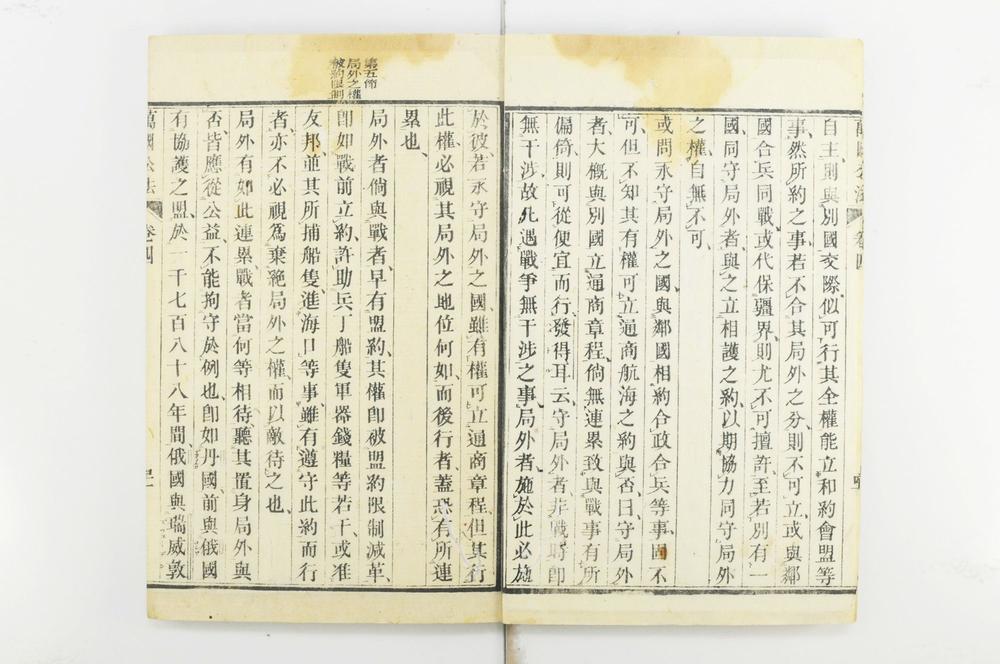 自主則與別國交際似可行其全權能立和約會盟等
事然所約之事若不合其局外之分則不可立或與鄰
國合兵同戰或代保疆界則尤不可擅許至若別有一
國同守局外者與之立相護之約以期協力同守局外
之權自無不可
或問永守局外之國與鄰國相約合政合兵等事固不
可但不知其有權可立通商航海之約與否曰守局外
者大概與別國立通商章程倘無連累致與戰事有所
偏倚則可從便宜而行發得耳云守局外者非戰時即
無干涉故凡遇戰爭無干涉之事局外者施於此必施
第五節
局外之權
被約限制
於彼若永守局外之國雖有權可立通商章程但其行
此權必視其局外之地位何如而後行者蓋恐有所連
累也
局外者倘與戰者早有盟約其權卽被盟約限制減革
卽如戰前立約許助兵丁船隻軍器錢糧等若干或准
友邦並其所捕船隻進海口等事雖有遵守此約而行
者亦不必視爲棄絕局外之權而以敵待之也
局外有如此連累戰者當何等相待聽其置身局外與
否皆應從公益不能拘守於例也卽如丹國前與俄國
有協護之盟於一千七百八十八年間俄國與瑞威敦
萬國公法
卷四